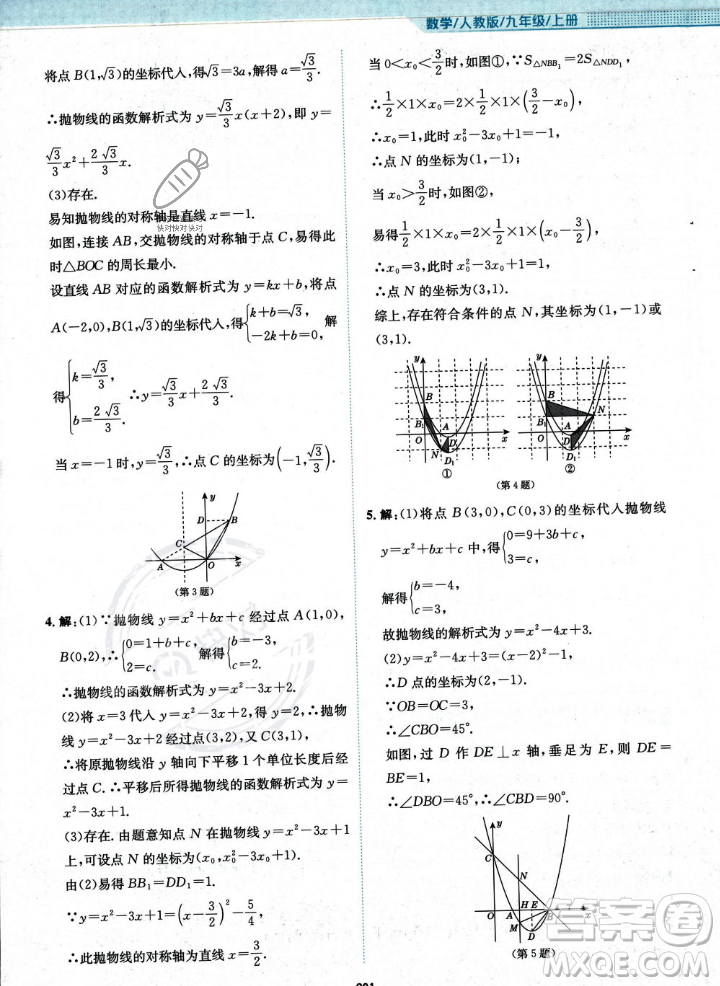 数学/人教版/九年级/上册
将点 B(1,√3)的坐标代入,得√3=3a,解得 a=√3/3.
∴抛物线的函数解析式为 y=√3/3 x(x+2),即 y=
√3/3 x²+2√3/3 x.
(3)存在.
易知抛物线的对称轴是直线 x=-1.
如图,连接 AB,交抛物线的对称轴于点 C,易得此
时△BOC 的周长最小.
设直线 AB 对应的函数解析式为 y=kx+b,将点
A(-2,0),B(1,√3)的坐标代入,得{k+b=√3, -2k+b=0, 解
得{k=√3/3, b=2√3/3. ∴y=√3/3 x+2√3/3.
当 x=-1 时,y=√3/3,∴点 C 的坐标为(-1,√3/3).
y
D
B
C
A
O
x
(第 3 题)
4. 解:(1)∵抛物线 y=x²+bx+c 经过点 A(1,0),
B(0,2),∴{0=1+b+c, 2=c. 解得{b=-3, c=2.
∴抛物线的函数解析式为 y=x²-3x+2.
(2)将 x=3 代入 y=x²-3x+2,得 y=2,∴抛物
线 y=x²-3x+2 经过点(3,2),又 C(3,1),
∴将原抛物线沿 y 轴向下平移 1 个单位长度后经
过点 C.∴平移后所得抛物线的函数解析式为 y=
x²-3x+1.
(3)存在. 由题意知点 N 在抛物线 y=x²-3x+1
上,可设点 N 的坐标为(x₀,x₀²-3x₀+1).
由(2)易得 BB₁=DD₁=1.
∵y=x²-3x+1=(x-3/2)²-5/4,
∴此抛物线的对称轴为直线 x=3/2.
当 0<x₀<3/2时,如图①,∵S△NBB₁=2S△NDD₁,
∴1/2×1×x₀=2×1/2×1×(3/2-x₀),
∴x₀=1,此时 x₀²-3x₀+1=-1,
∴点 N 的坐标为(1,-1).
当 x₀>3/2时,如图②,
易得1/2×1×x₀=2×1/2×1×(x₀-3/2),
∴x₀=3,此时 x₀²-3x₀+1=1,
∴点 N 的坐标为(3,1).
综上,存在符合条件的点 N,坐标为(1,-1)或
(3,1).
y
B
B₁
O
A
D
N
D₁
x
①
y
B
B₁
N
O
A
D
D₁
x
②
(第 4 题)
5. 解:(1)将点 B(3,0),C(0,3)的坐标代入抛物线
y=x²+bx+c 中,得{0=9+3b+c, 3=c.
解得{b=-4, c=3,
故抛物线的解析式为 y=x²-4x+3.
(2)y=x²-4x+3=(x-2)²-1,
∴D 点的坐标为(2,-1).
∵OB=OC=3,
∴∠CBO=45°.
如图,过 D 作 DE⊥x 轴,垂足为 E,则 DE=
BE=1.
∴∠DBO=45°,∴∠CBD=90°.
y
C
N
H
E
O
A
B
x
M
D
(第 5 题)
快对快对快对
答案卷
MXQE.COM